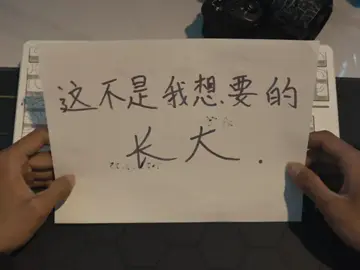 这不是我想要的
长大.